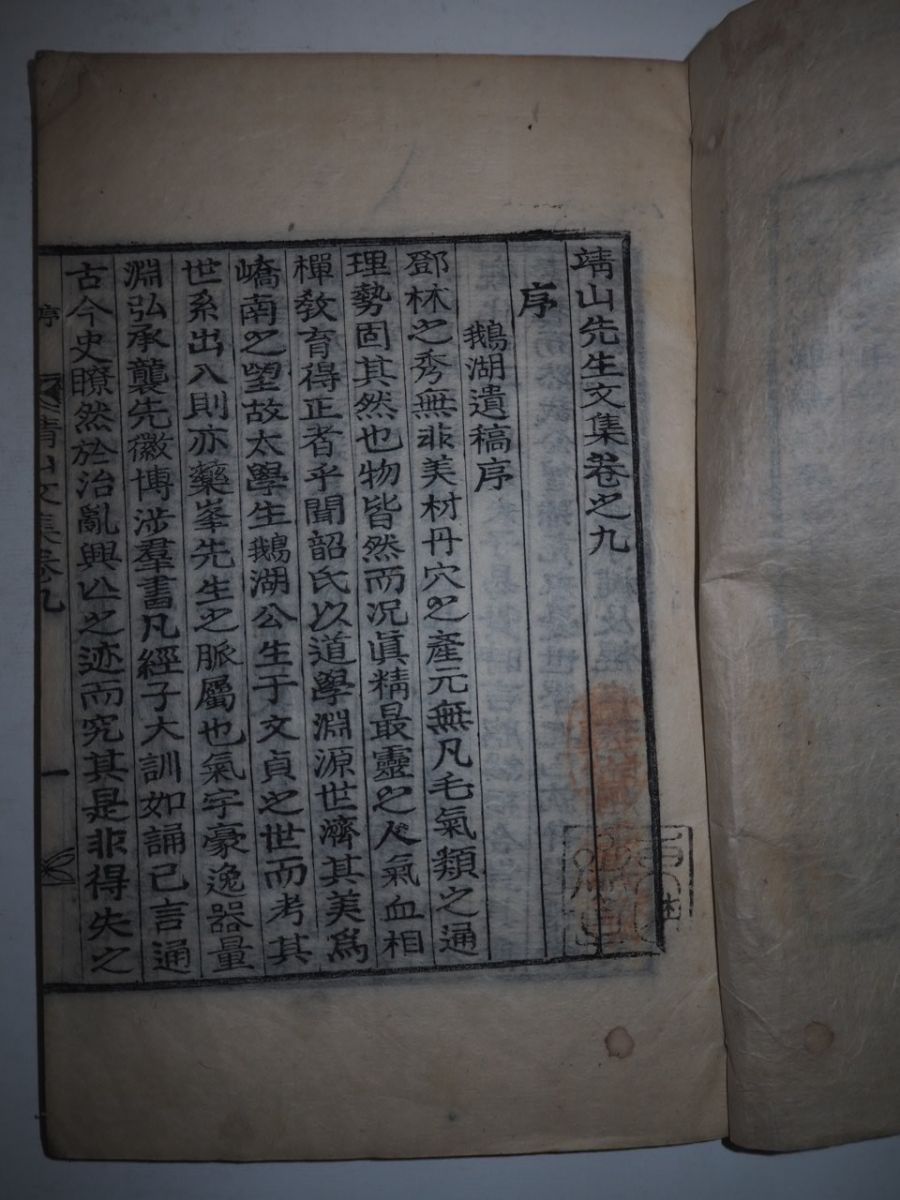 靖山先生文集卷之九
序
鵝湖遺稿序
鄧林之秀無非美材丹穴之產元無凡毛氣類之通
理勢固其然也物皆然而况眞精最靈之人氣血相
襌敎育得正者乎聞韶氏以道學淵源世濟其美爲
嶠南之望故太學生鵝湖公生于文貞之世而考其
世系出入則亦藥峯先生之脈屬也氣宇豪逸器量
淵弘承襲先徽博涉羣書凡經子大訓如誦已言通
古今史瞭然於治亂興亾之迹而究其是非得失之
序
靖山文集卷九
一